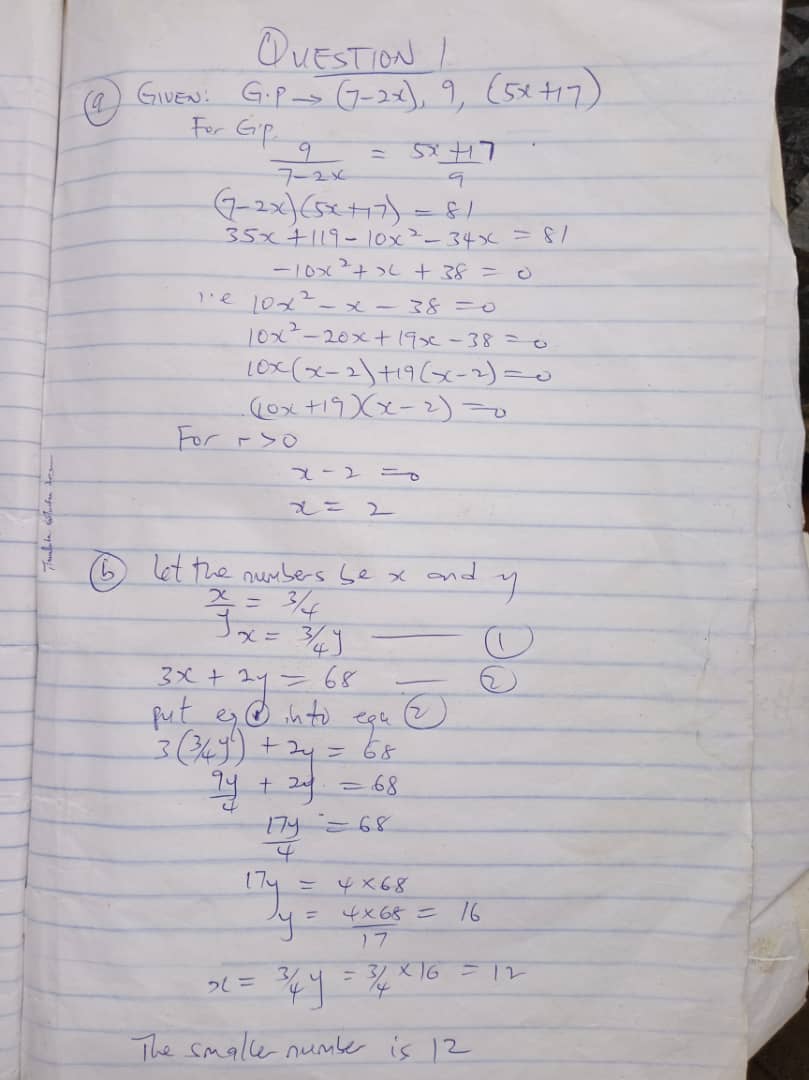 QUESTION 1
(a) GIVEN: G.P → (7-2x), 9, (5x+17)
For G.p.
9/(7-2x) = (5x+17)/9
(7-2x)(5x+17) = 81
35x + 119 - 10x² - 34x = 81
-10x² + x + 38 = 0
i.e 10x² - x - 38 = 0
10x² - 20x + 19x - 38 = 0
10x(x-2)+19(x-2) = 0
(10x+19)(x-2) = 0
For r>0
x - 2 = 0
x = 2
(b) Let the numbers be x and y
x/y = 3/4
x = 3/4 y —— (1)
3x + 2y = 68 —— (2)
put eq (1) into equ (2)
3(3/4 y) + 2y = 68
9y/4 + 2y = 68
17y/4 = 68
17y = 4×68
y = 4×68/17 = 16
x = 3/4 y = 3/4 × 16 = 12
The smaller number is 12